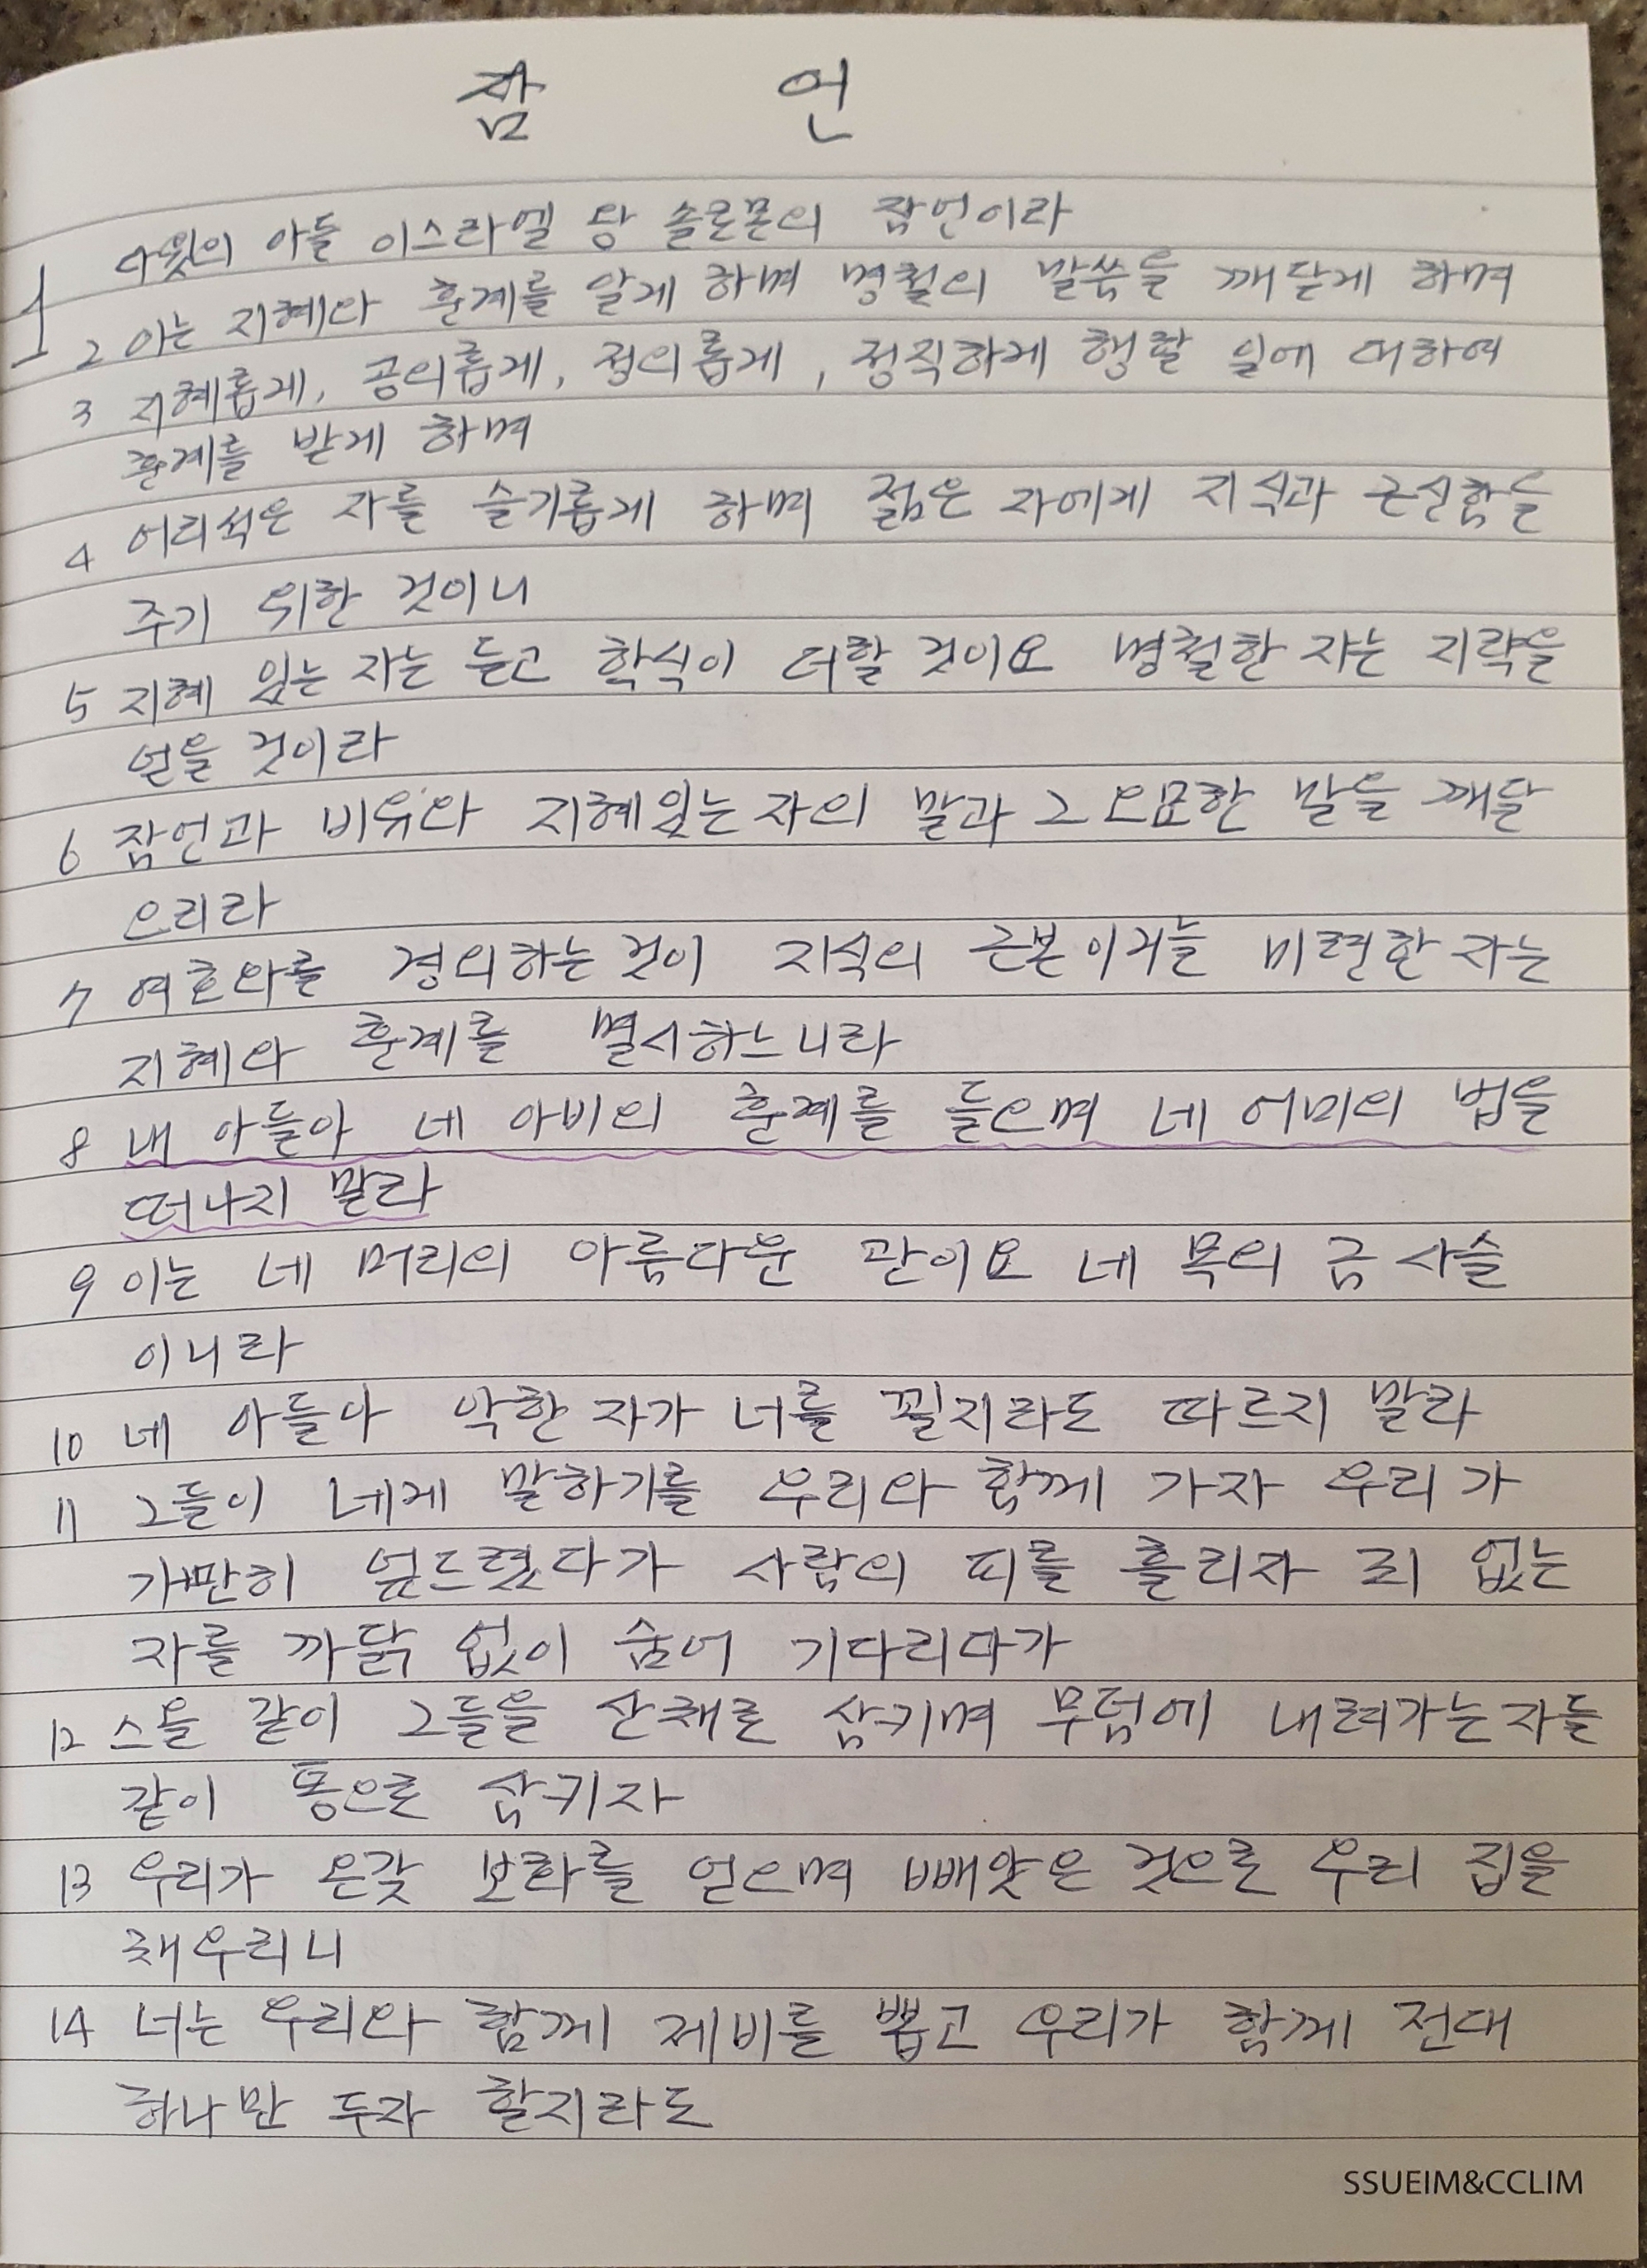 잠 언
1 다윗의 아들 이스라엘 왕 솔로몬의 잠언이라
2 이는 지혜와 훈계를 알게 하며 명철의 말씀을 깨닫게 하며
3 지혜롭게, 공의롭게, 정의롭게, 정직하게 행할 일에 대하여
훈계를 받게 하며
4 어리석은 자를 슬기롭게 하며 젊은 자에게 지식과 근신함을
주기 위한 것이니
5 지혜 있는 자는 듣고 학식이 더할 것이요 명철한 자는 지략을
얻을 것이라
6 잠언과 비유와 지혜있는 자의 말과 그 오묘한 말을 깨달
으리라
7 여호와를 경외하는 것이 지식의 근본이거늘 미련한 자는
지혜와 훈계를 멸시하느니라
8 내 아들아 네 아비의 훈계를 들으며 네 어미의 법을
떠나지 말라
9 이는 네 머리의 아름다운 관이요 네 목의 금 사슬
이니라
10 네 아들아 악한 자가 너를 꾈지라도 따르지 말라
11 그들이 네게 말하기를 우리와 함께 가자 우리가
가만히 엎드렸다가 사람의 피를 흘리자 죄 없는
자를 까닭 없이 숨어 기다리다가
12 스올 같이 그들을 산채로 삼키며 무덤에 내려가는 자들
같이 통으로 삼키자
13 우리가 온갖 보화를 얻으며 빼앗은 것으로 우리 집을
채우리니
14 너는 우리와 함께 제비를 뽑고 우리가 함께 전대
하나만 두자 할지라도
SSUEIM&CCLIM